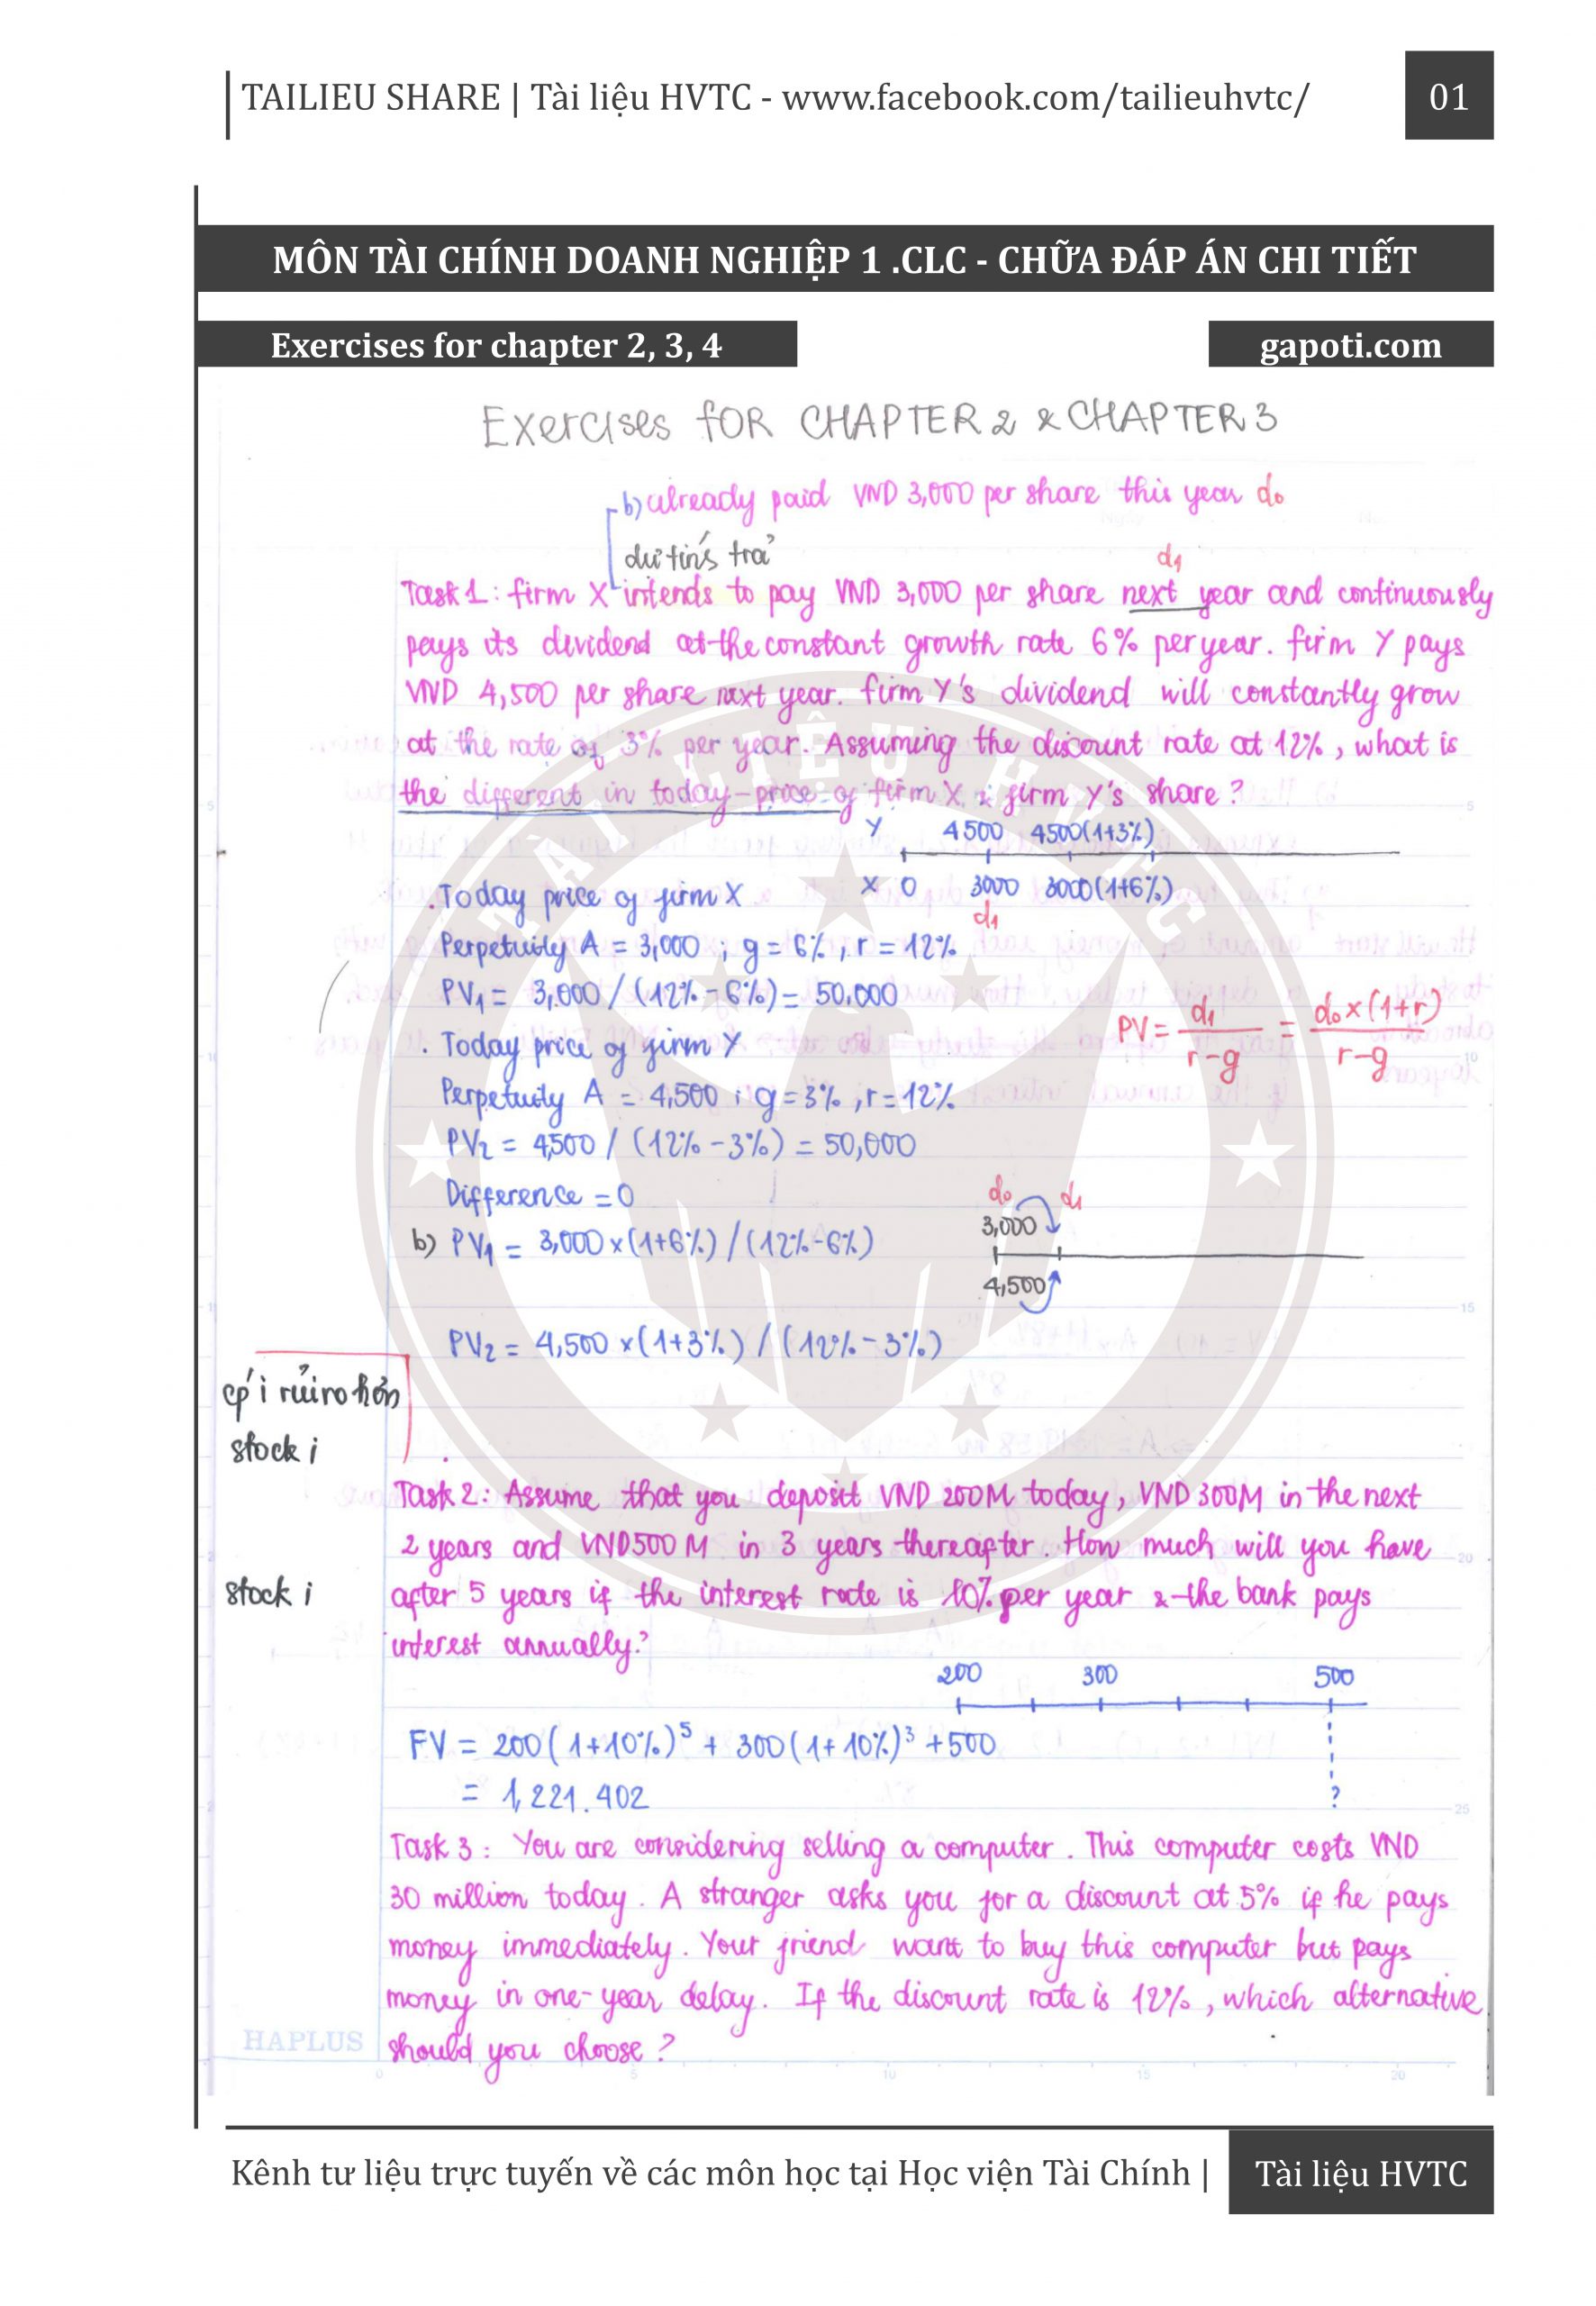 TAILIEU SHARE | Tài liệu HVTC - www.facebook.com/tailieuhvtc/
01
MÔN TÀI CHÍNH DOANH NGHIỆP 1 .CLC - CHỮA ĐÁP ÁN CHI TIẾT
Exercises for chapter 2, 3, 4
gapoti.com
Exercises FOR CHAPTER 2 & CHAPTER 3
b) already paid VND 3,000 per share this year d₀
dự tính trả
d₁
Task 1: firm X intends to pay VND 3,000 per share next year and continuously
pays its dividend at the constant growth rate 6% per year. firm Y pays
VND 4,500 per share next year. firm Y's dividend will constantly grow
at the rate of 3% per year. Assuming the discount rate at 12%, what is
the different in today-price of firm X & firm Y's share?
Y 4500 4500(1+3%)
X 0 3000 3000(1+6%)
d₁
. Today price of firm X
Perpetuity A = 3,000 ; g = 6%, r = 12%
PV₁ = 3,000 / (12% - 6%) = 50,000
PV = d₁ / r-g = d₀ x (1+r) / r-g
. Today price of firm Y
Perpetuity A = 4,500 ; g = 3%, r = 12%
PV₂ = 4,500 / (12% - 3%) = 50,000
Difference = 0
d₀ d₁
3,000
4,500
b) PV₁ = 3,000 x (1+6%) / (12% - 6%)
PV₂ = 4,500 x (1+3%) / (12% - 3%)
cp' i rủi ro hơn
stock i
Task 2: Assume that you deposit VND 200M today, VND 300M in the next
2 years and VND 500 M in 3 years thereafter. How much will you have
stock i
after 5 years if the interest rate is 10% per year & the bank pays
interest annually?
200 300 500
FV = 200 (1+10%)⁵ + 300 (1+10%)³ + 500
= 1,221.402
?
Task 3: You are considering selling a computer. This computer costs VND
30 million today. A stranger asks you for a discount at 5% if he pays
money immediately. Your friend want to buy this computer but pays
money in one-year delay. If the discount rate is 12%, which alternative
should you choose?
HAPLUS
TÀI LIỆU HVTC
Kênh tư liệu trực tuyến về các môn học tại Học viện Tài Chính |
Tài liệu HVTC